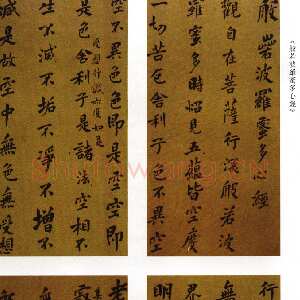 《般若波羅蜜多心經》
般若波羅蜜多心經
觀自在菩薩行深般若波
羅蜜多時照見五蘊皆空度
一切苦厄舍利子色不異空
空不異色色即是空空即
受想行識亦復如是
是色舍利子是諸法空相不
生不滅不垢不淨不增不
減是故空中無色無受想
行
無
界
明
老